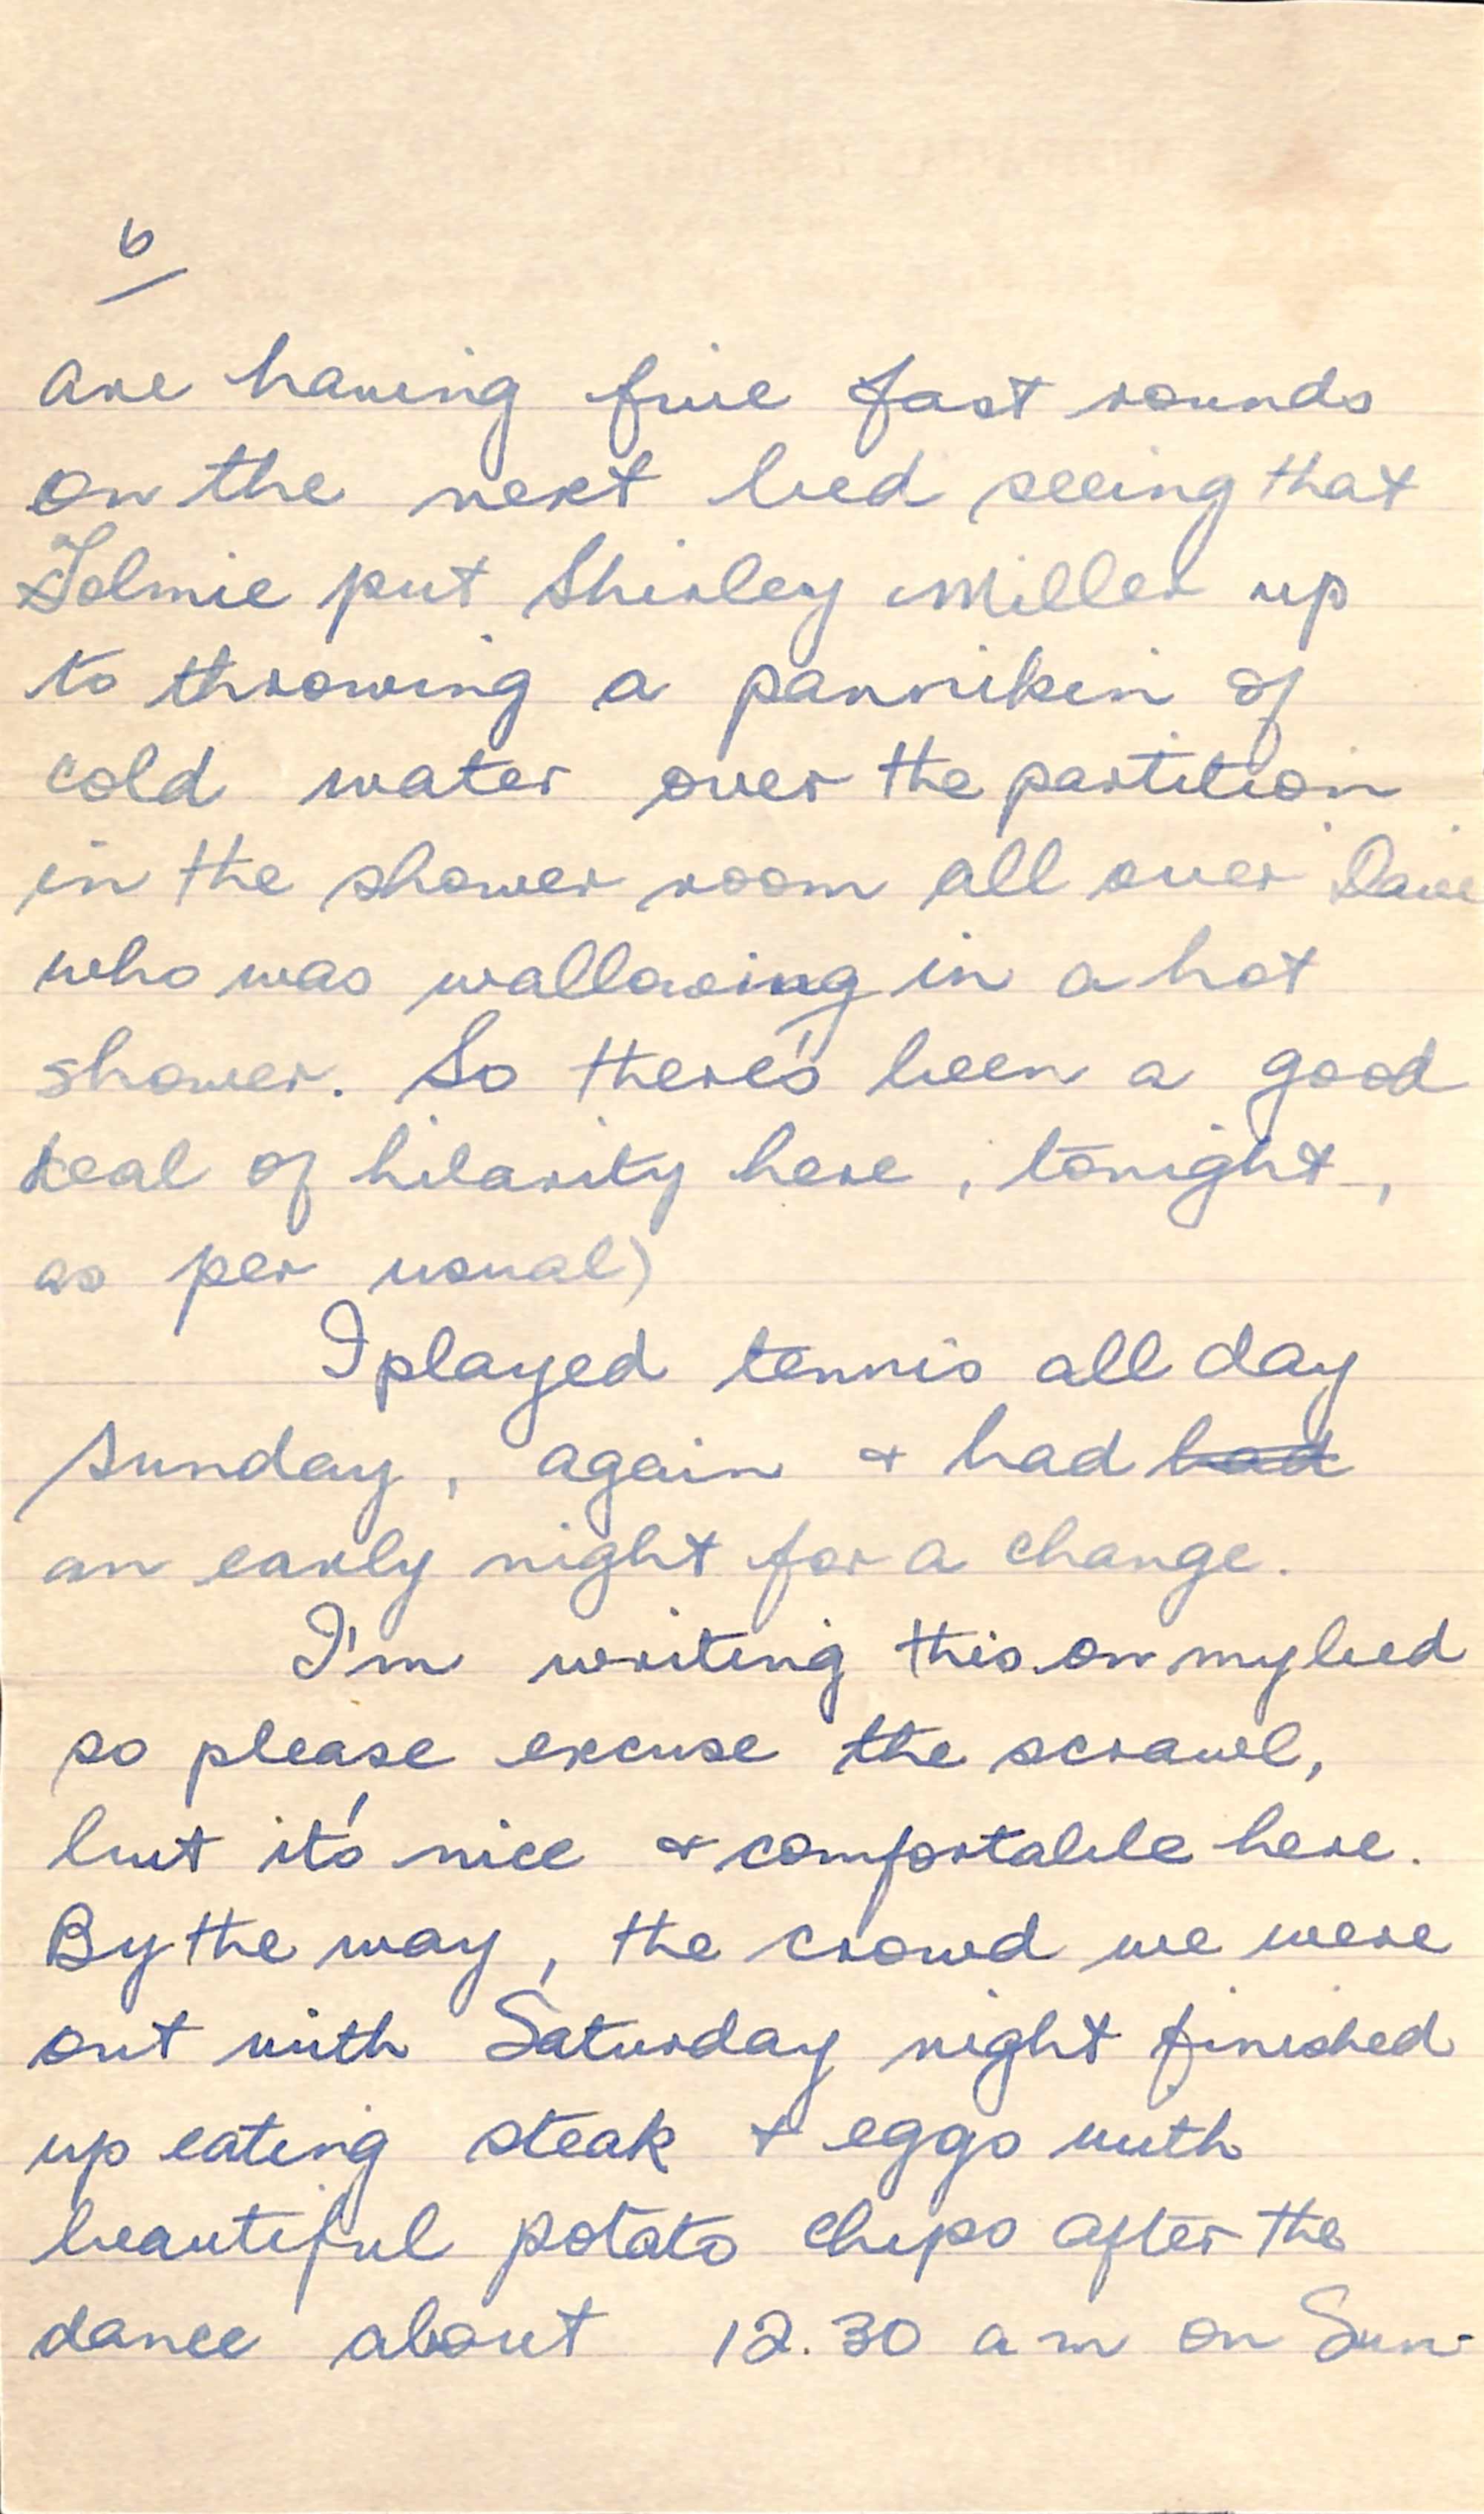 6
are having five fast rounds
on the next bed seeing that
Tolmie put Shirley Miller up
to throwing a pannikin of
cold water over the partition
in the shower room all over Dave
who was wallowing in a hot
shower. So there's been a good
deal of hilarity here, tonight,
as per usual)
I played tennis all day
Sunday, again & had had
an early night for a change.
I'm writing this on my bed
so please excuse the scrawl,
but it's nice & comfortable here.
By the way, the crowd we were
out with Saturday night finished
up eating steak & eggs with
beautiful potato chips after the
dance about 12.30 a m on Sun-